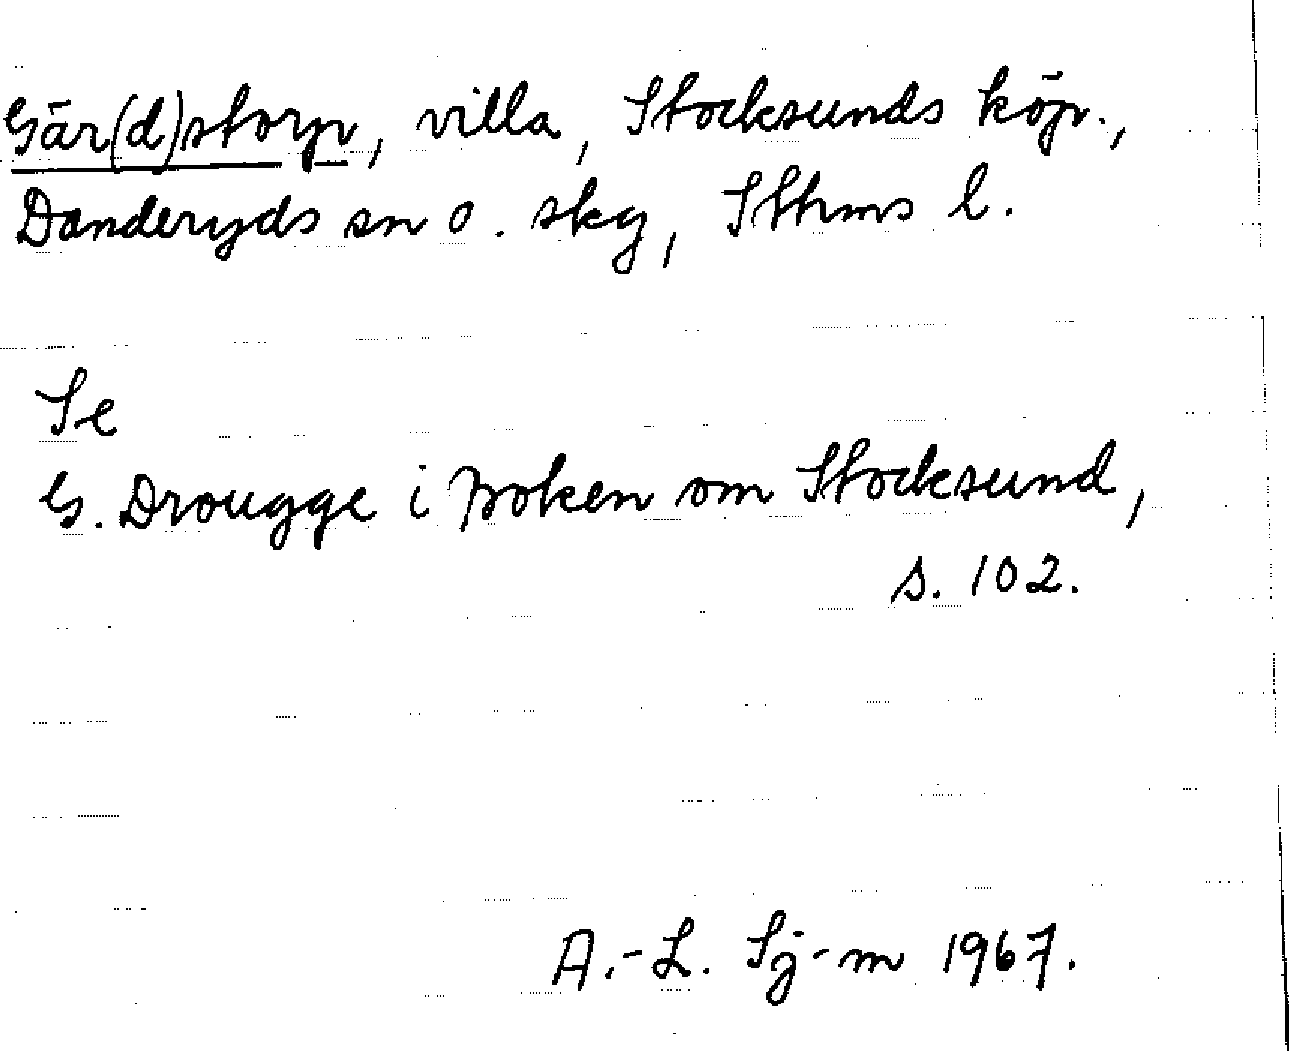 Gär(d)storp, villa, Stocksunds köp.,
Danderyds sn o. skg, Sthms l.
Se
G. Drougge i Boken om Stocksund,
s. 102.
A.-L. Sj-m 1967.